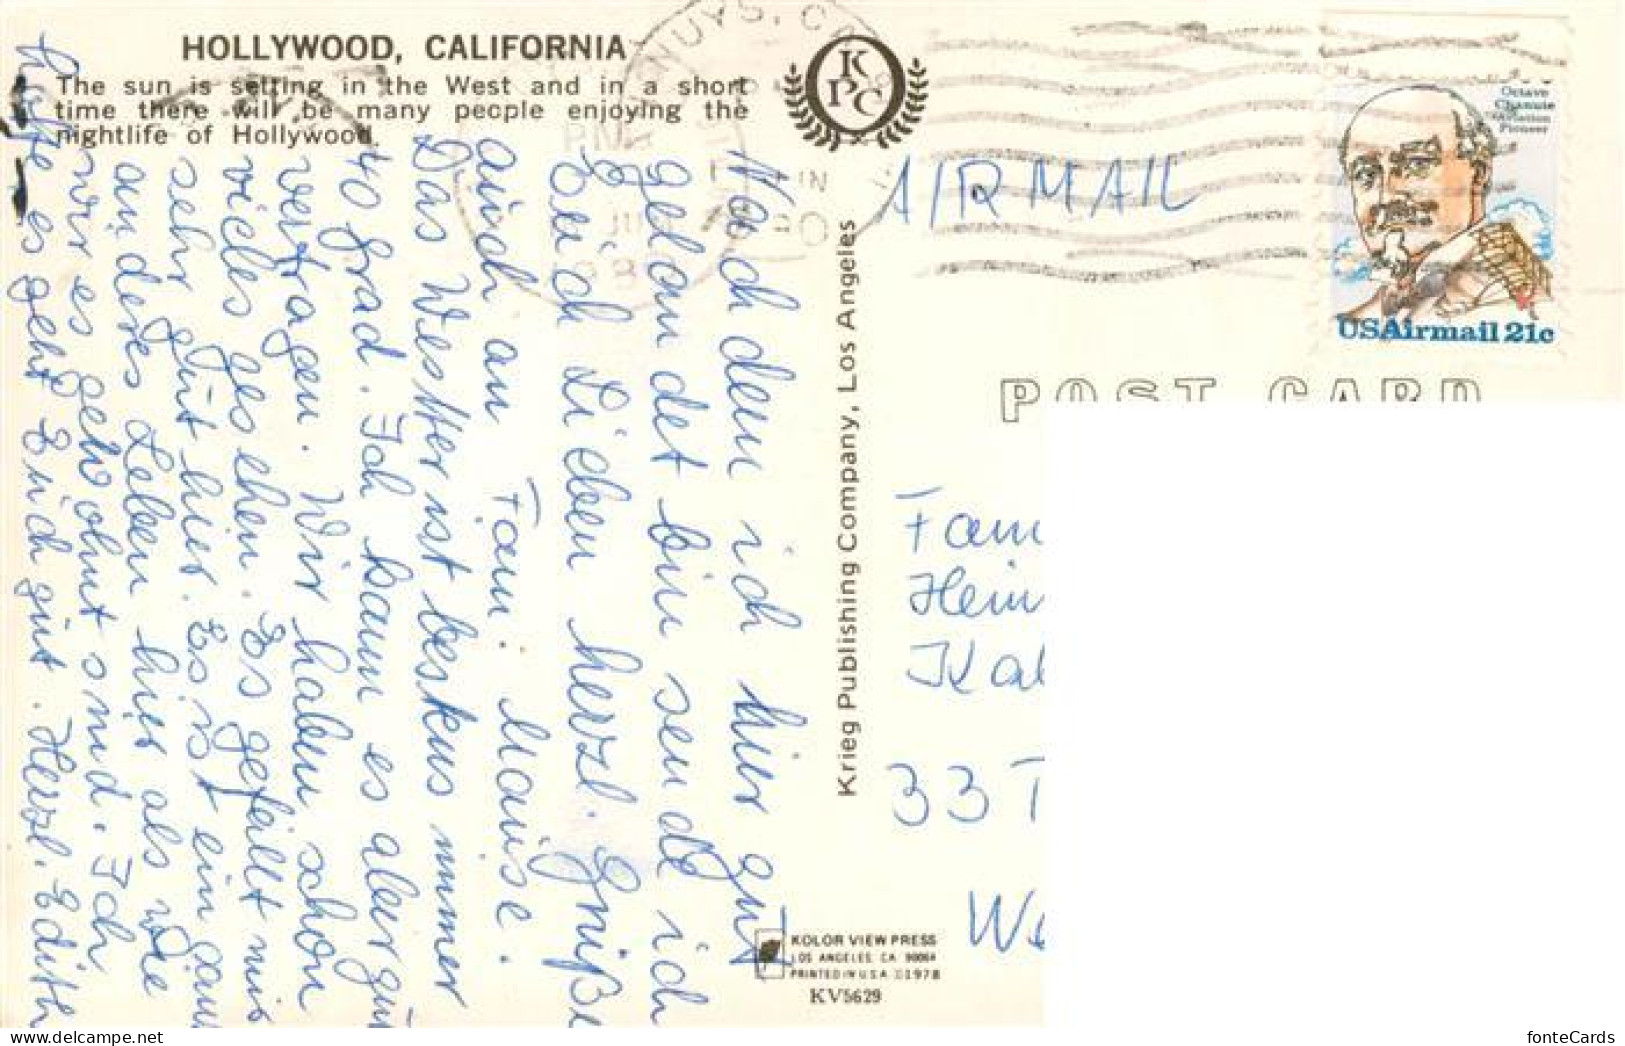 HOLLYWOOD, CALIFORNIA
The sun is setting in the West and in a short
time there will be many people enjoying the
nightlife of Hollywood.
KPC
NUYS, C
PM
AIRMAIL
Octave
Chanute
Aviation
Pioneer
USAirmail 21c
POST CARD
Krieg Publishing Company, Los Angeles
Nach dem ich hier gut
gelandet bin sende ich
Euch Lieben herzl. Grüße
auch an Fam. Mause.
Das Wetter ist immer
40 Grad. Ich kann es aber gut
vertragen. Wir haben schon
vieles gesehen. Es gefällt mir
sehr gut hier. Es ist ein ganz
anderes Leben hier als wie
wir es gewohnt sind. Ich
hoffe es geht Euch gut. Herzl. Edith
Fam
Hein
Kal
33 T
We
KOLOR VIEW PRESS
LOS ANGELES CA 90064
PRINTED IN USA ©1978
KV5629
fonteCards